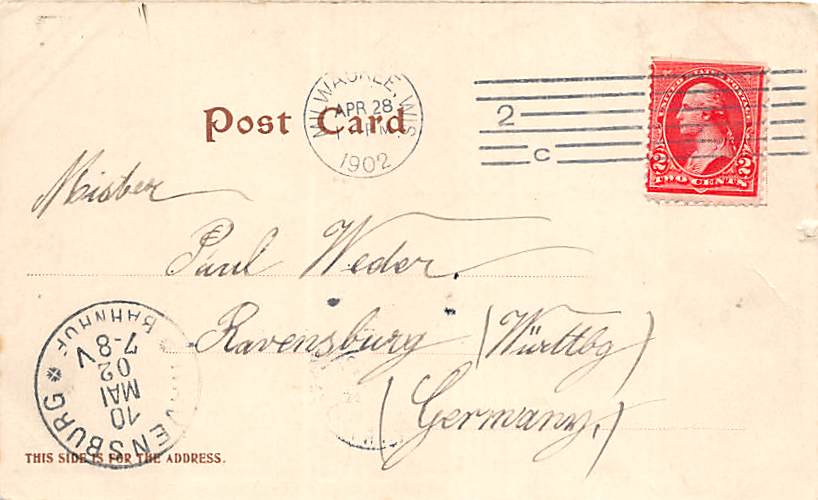 MILWAUKEE, WIS.
APR 28
M
1902
2
C
Post Card
UNITED STATES POSTAGE
2 2
TWO CENTS
Mister
Paul Weder.
Ravensburg (Württbg)
(Germany.)
RAVENSBURG
10
MAI
02
7-8 V
BAHNHOF
THIS SIDE IS FOR THE ADDRESS.